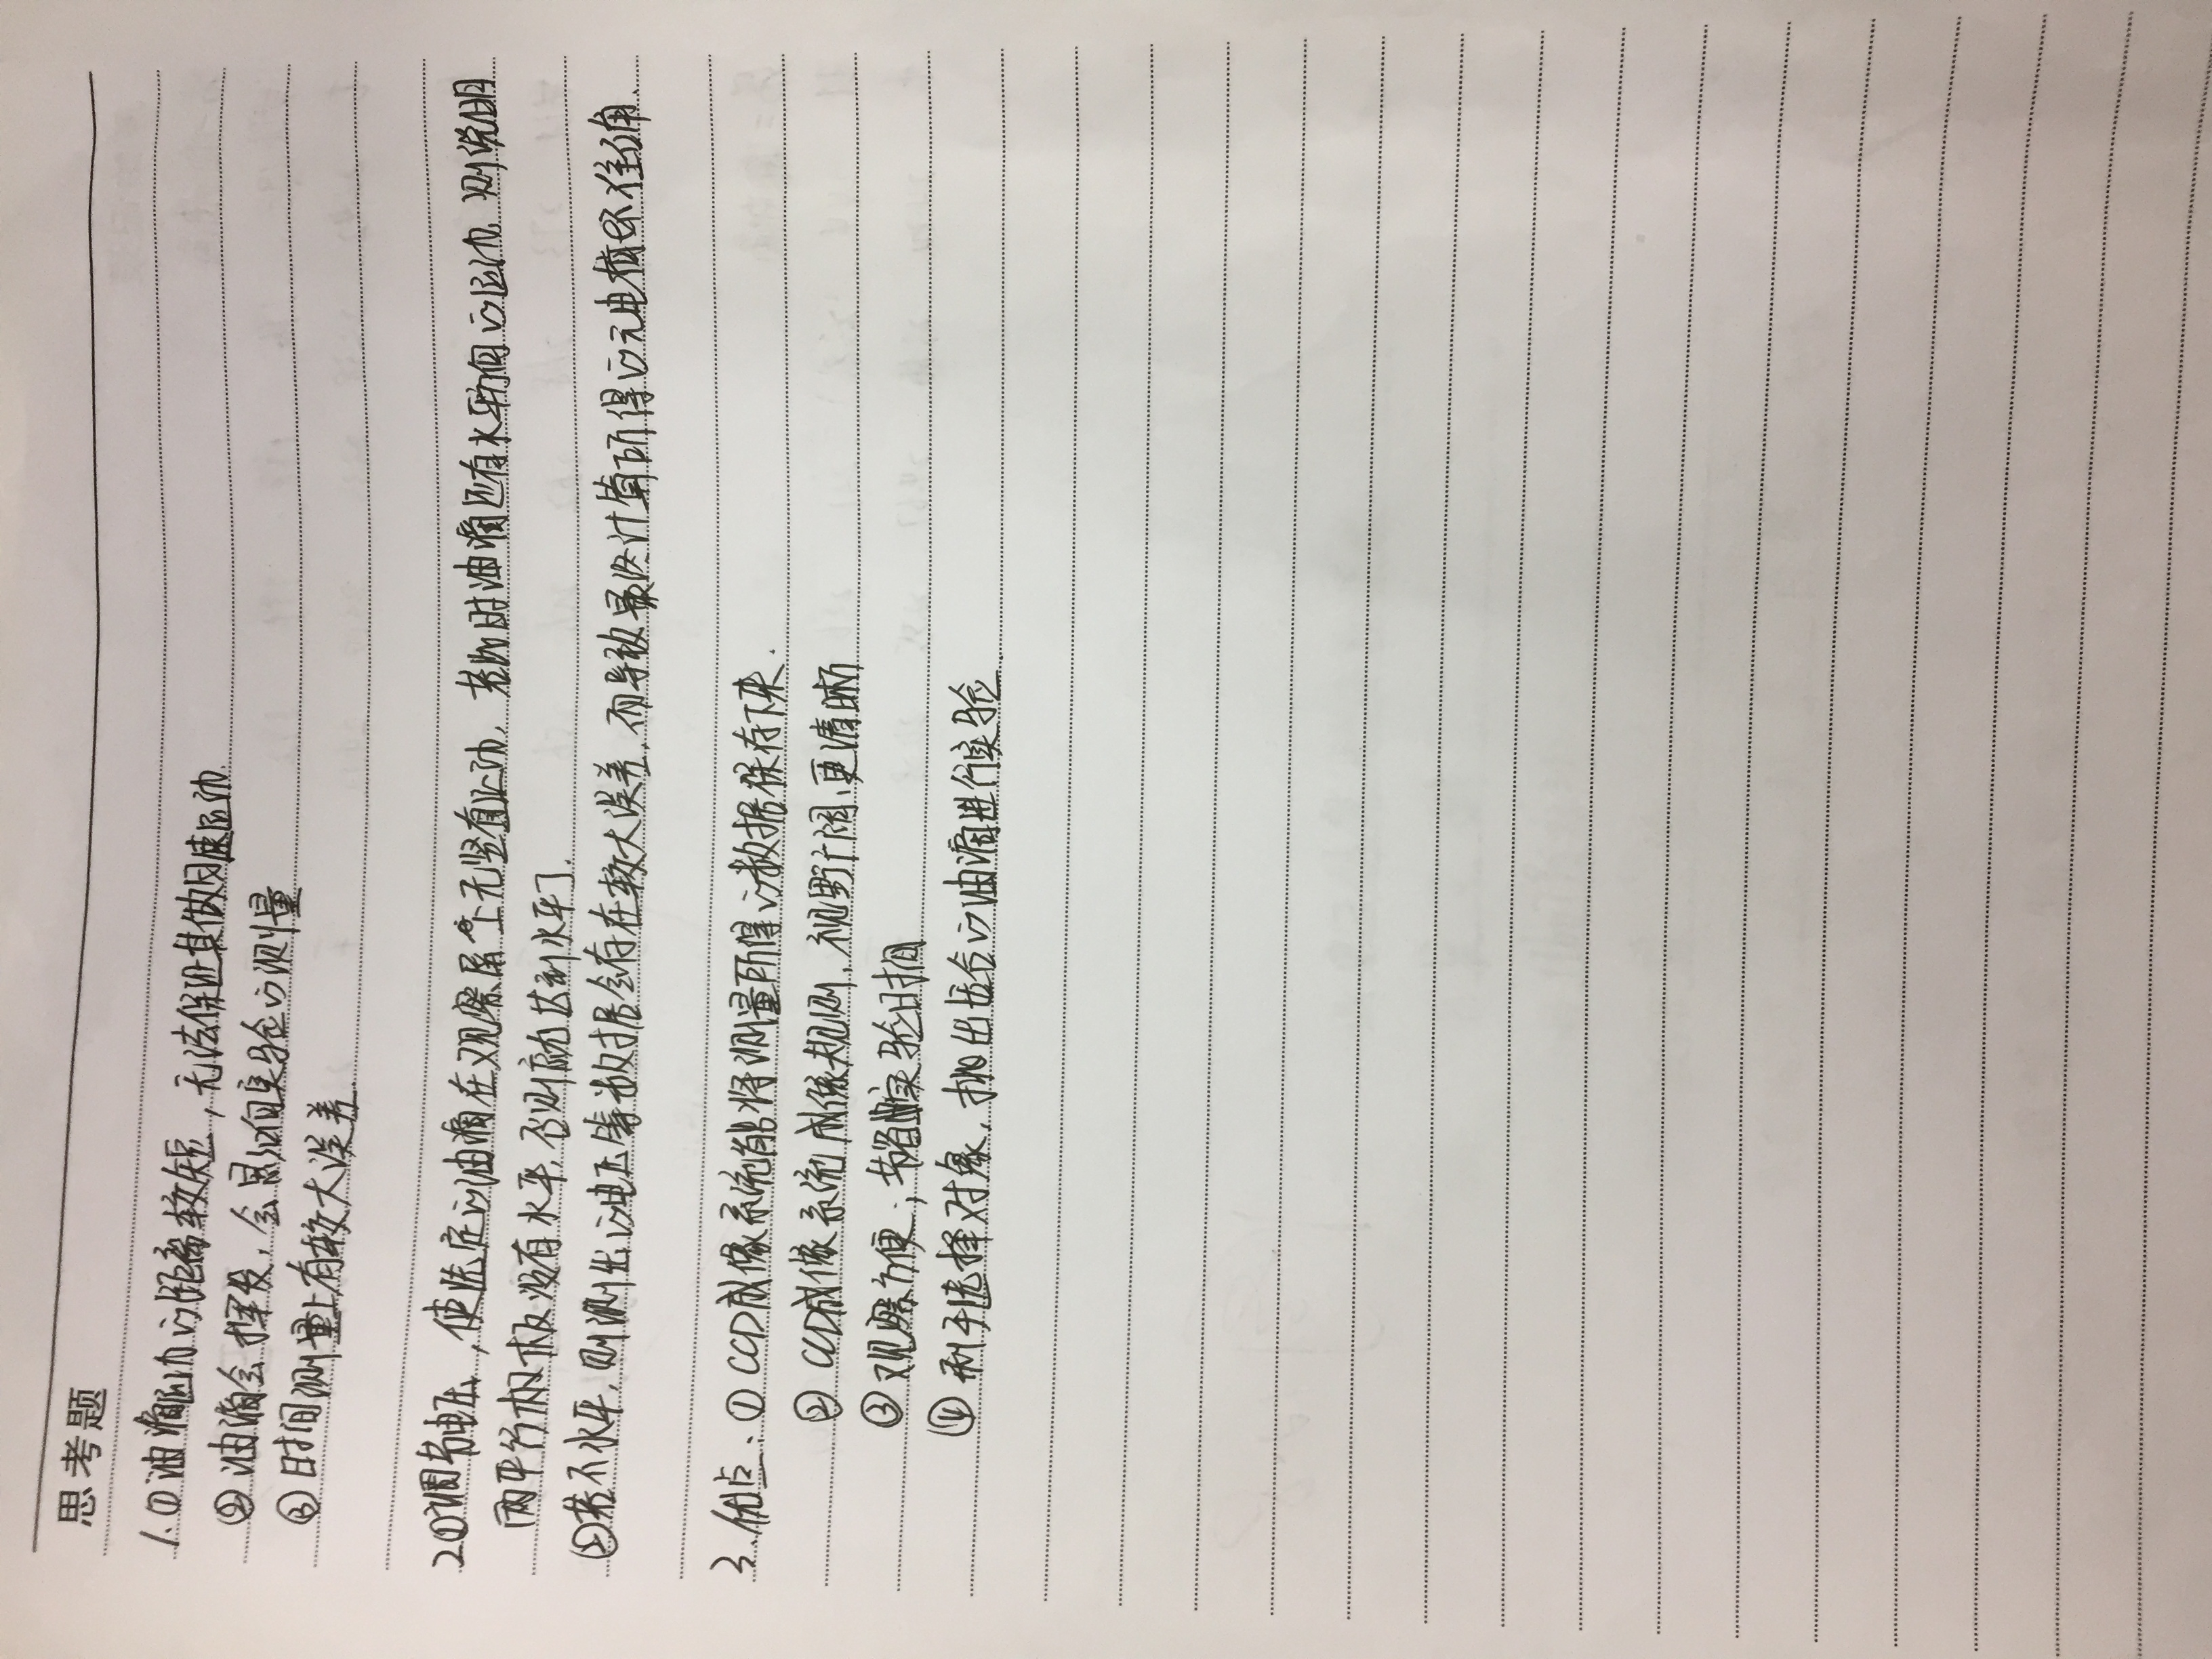 思考题
1.①油滴运动的距离较短，无法保证其做匀速运动.
②油滴会挥发，会影响实验的测量
③时间测量上有较大误差.
2.①调节电压，使选定的油滴在观察屏上无竖直运动，若此时油滴还有水平方向的运动，则说明
两平行极板没有水平，否则就达到水平了.
②若不水平，则测出的电压等数据会存在较大误差，而导致最终计算所得的元电荷不准确.
3.优点：①CCD成像系统能将测量所得的数据保存下来.
②CCD成像系统成像规则，视野广阔，更清晰
③观察方便，节省实验时间
④利于选择对象，挑出合适的油滴进行实验.